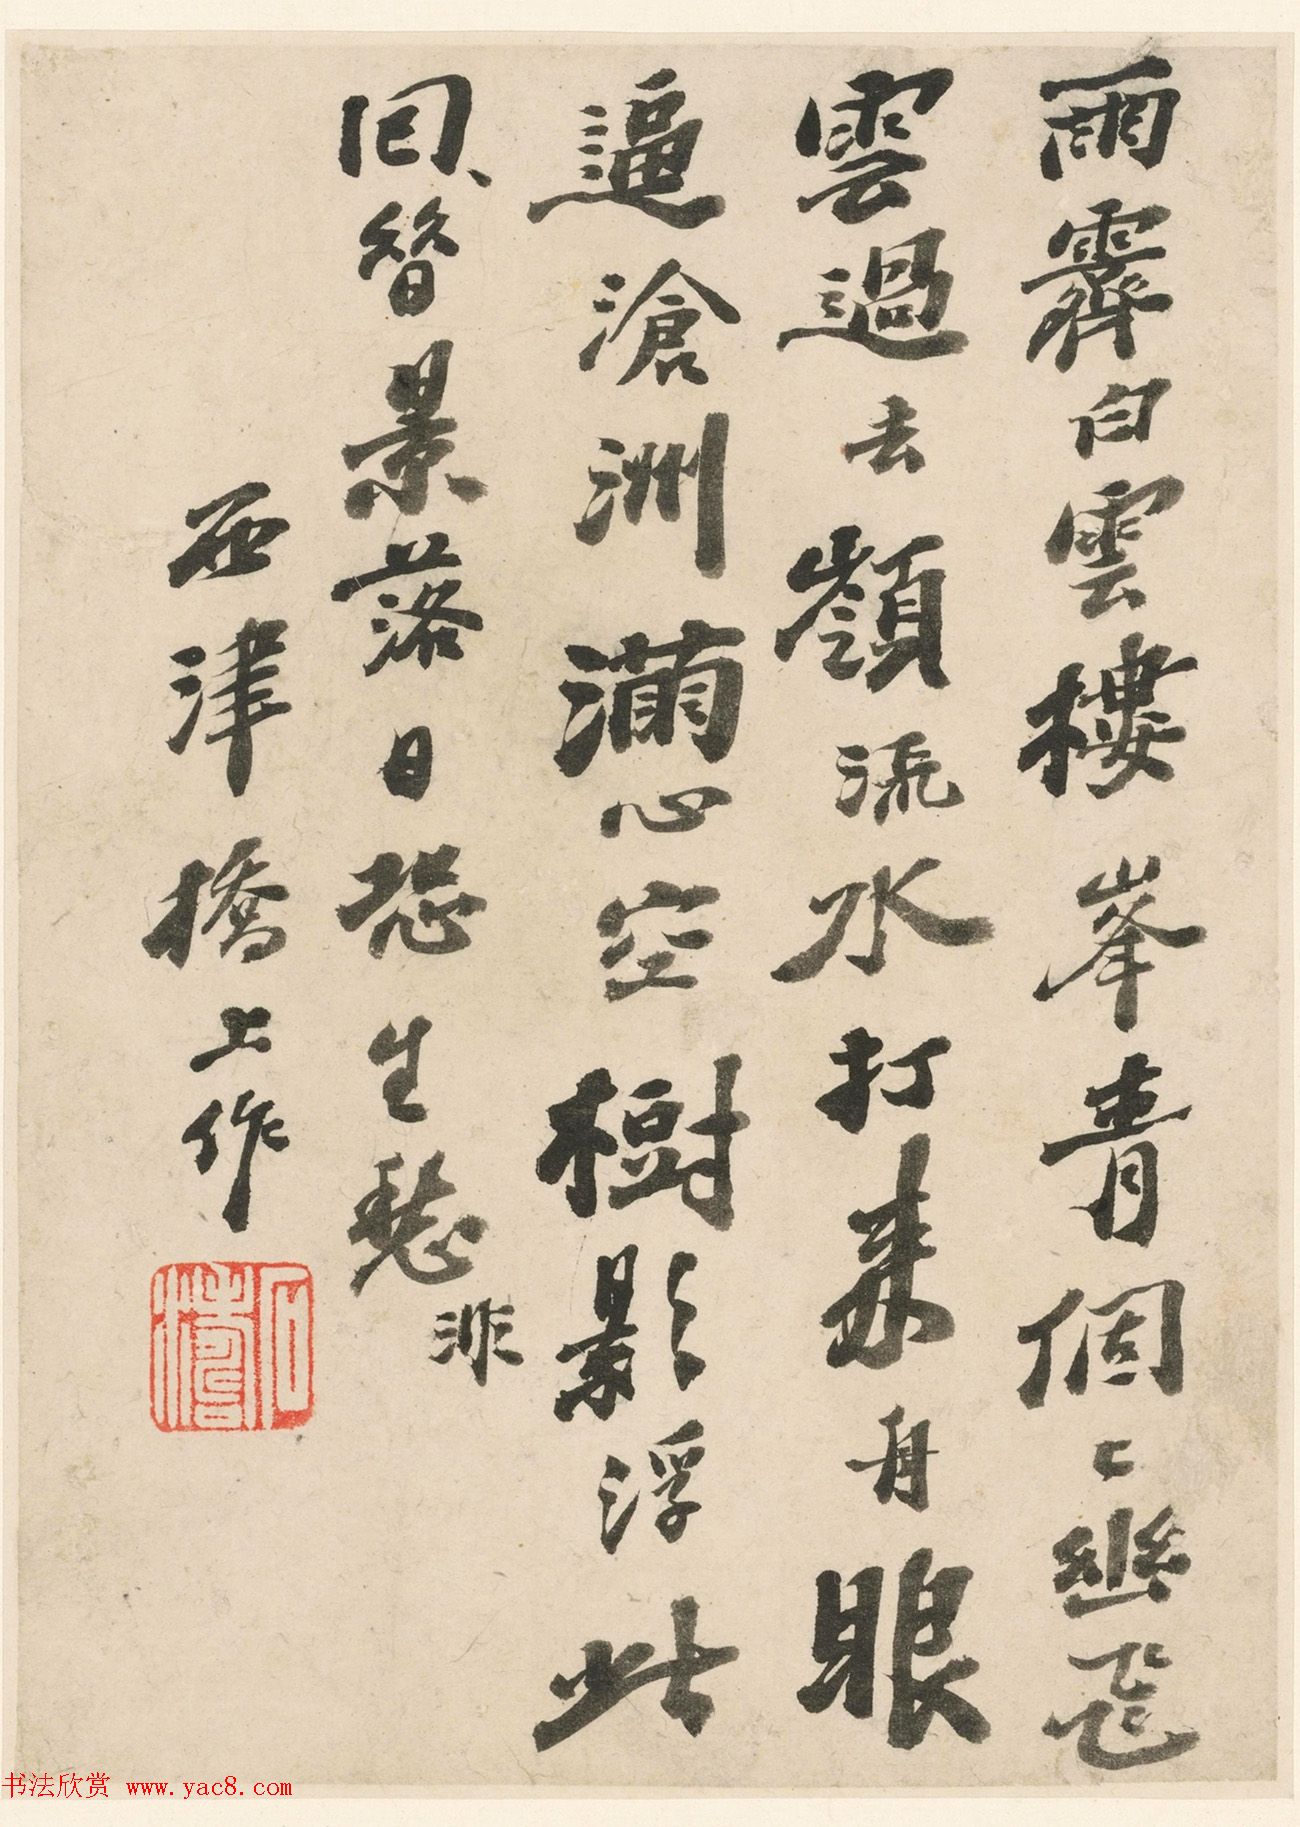 雨霽白雲樓峯青個〻幽飛
雲過去嶺流水打來舟眼
逼滄洲滿心空樹影浮此
回景落日恐生愁 非
西津橋上作
石濤
书法欣赏 www.yac8.com